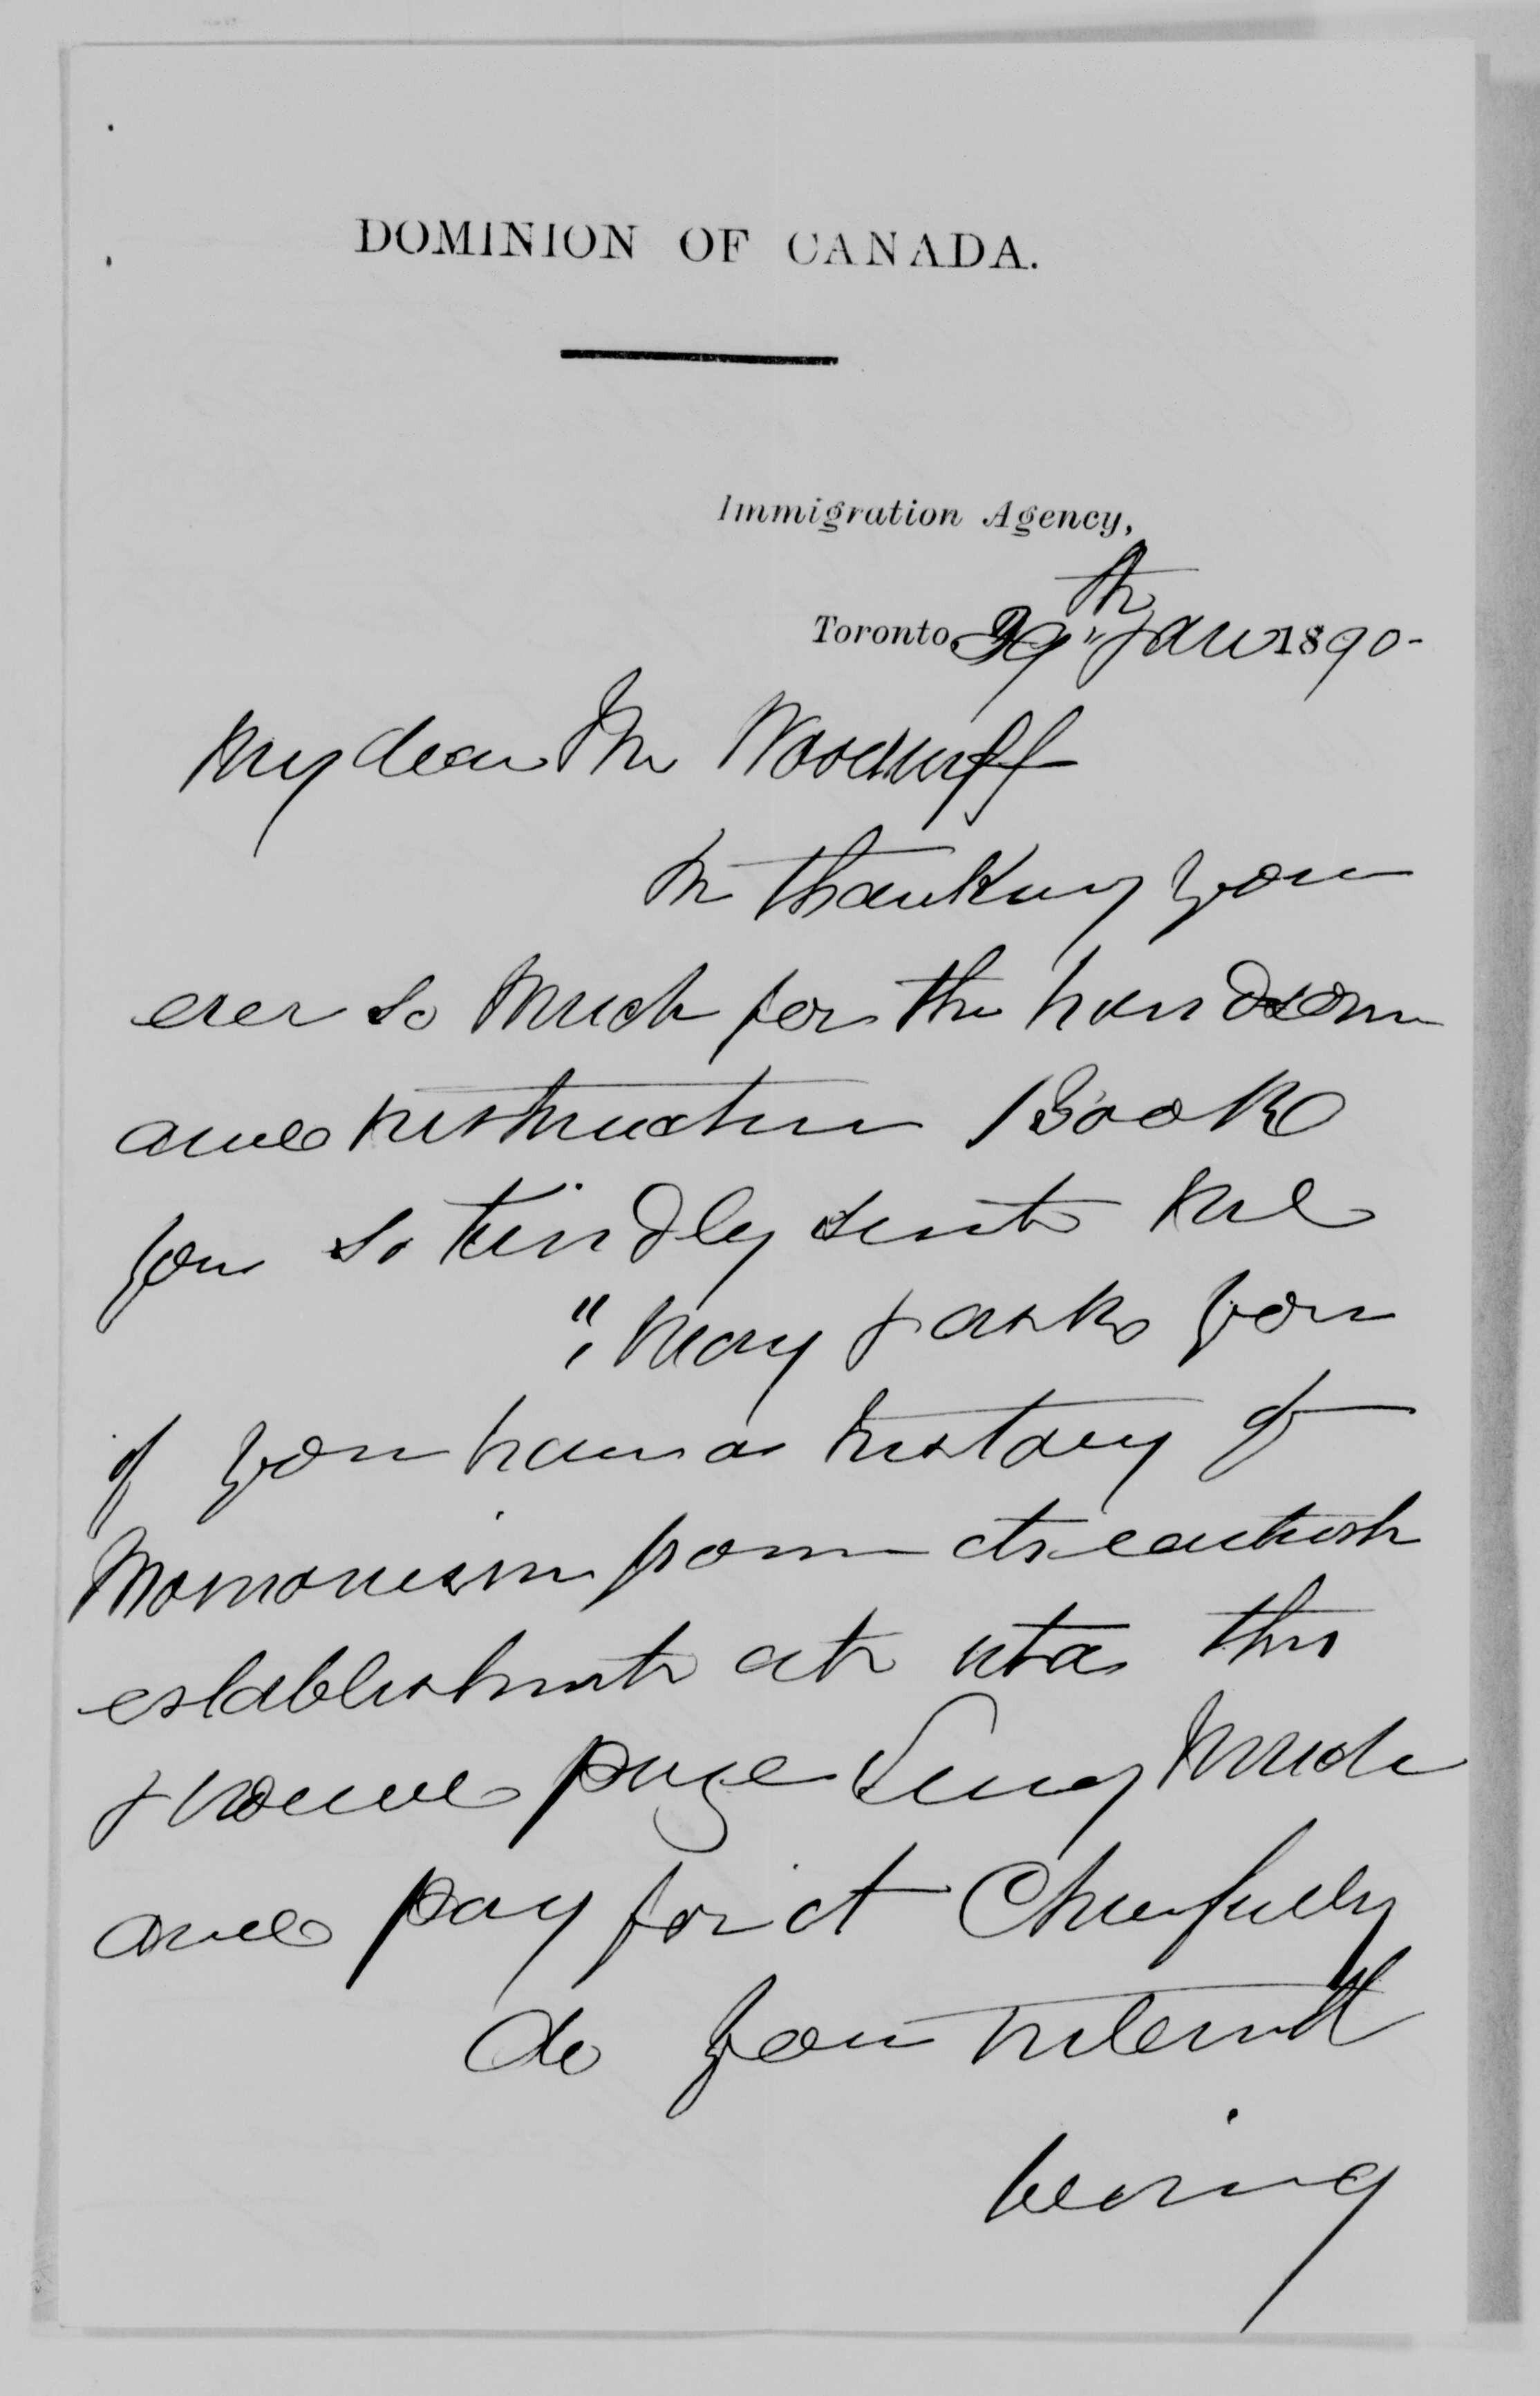 DOMINION OF CANADA.
Immigration Agency,
Toronto, 29th Jan 1890-
My dear Mr Woodruff
In thanking you
ever so much for the handsome
and instructive Book
you so kindly sent me
" May I ask you
if you have a history of
Mormonism from its earliest
establishment at Uta this
I would prize very much
and pay for it Cheerfully
do you intend
being